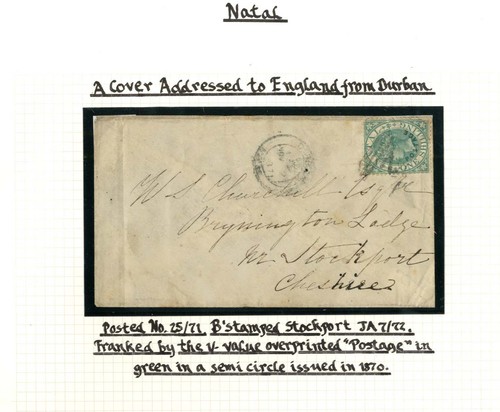 Natal
A Cover Addressed to England from Durban
W S Churchill Esqre
Brynington Lodge
nr Stockport
Cheshire
Posted No. 25/71. B'stamped Stockport JA 7/72.
Franked by the 1/- value overprinted "Postage" in
green in a semi circle issued in 1870.